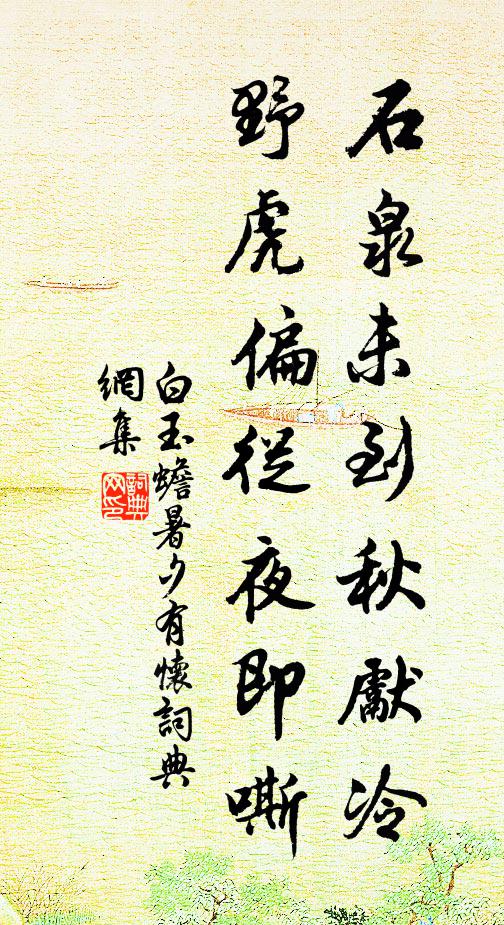 石泉未到秋獻冷
野虎偏從夜即嘶
白玉蟾暑夕有懷詞典
網集
詞典
网印